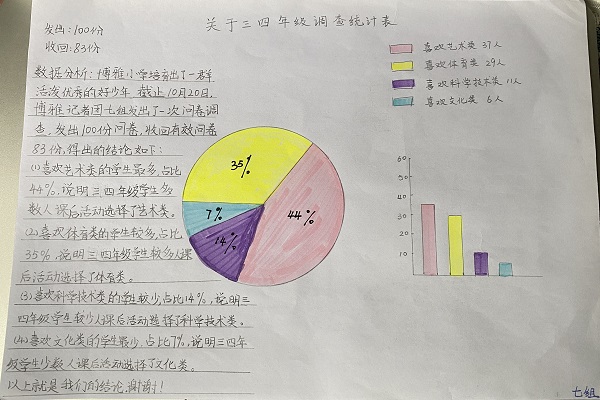 关于三四年级调查统计表
发出:100份
收回:83份
数据分析:博雅小学培育出了一群
活泼优秀的好少年.截止10月20日,
博雅记者团七组发出了一次问卷调
查,发出100份问卷,收回有效问卷
83份,得出的结论如下:
(1)喜欢艺术类的学生最多,占比
44%,说明三四年级学生多
数人课后活动选择了艺术类。
(2)喜欢体育类的学生较多,占比
35%,说明三四年级学生较多人课
后活动选择了体育类。
(3)喜欢科学技术类的学生较少,占比14%,说明三
四年级学生较少人课后活动选择了科学技术类。
(4)喜欢文化类的学生最少,占比7%,说明三四年
级学生少数人课后活动选择了文化类。
以上就是我们的结论,谢谢!
35%
7%
14%
44%
喜欢艺术类 37人
喜欢体育类 29人
喜欢科学技术类 11人
喜欢文化类 6人
60
50
40
30
20
10
七组